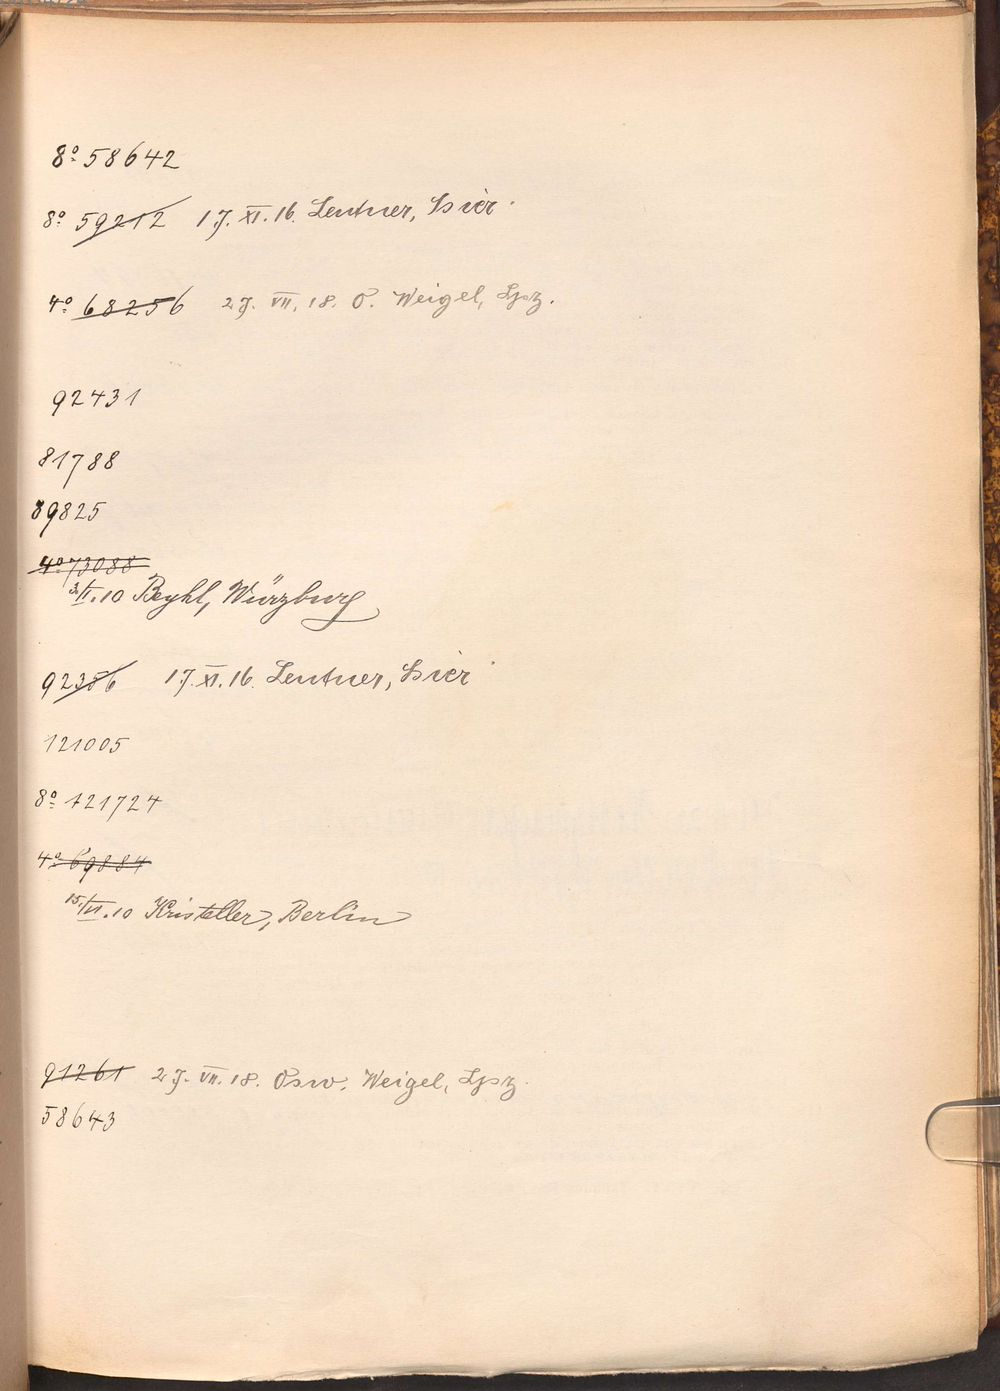 8º 58642
8º 59212 17. XI. 16. Lentner, hier.
4º 68256 27. VII. 18. O. Weigel, Lpz.
92431
81788
89825
4º 73088
3/II. 10 Beyhl, Würzburg
92356 17. XI. 16. Lentner, hier
121005
8º 121724
4º 69884
15./VI. 10 Kristeller, Berlin
91261 27. VII. 18. Osw. Weigel, Lpz.
58643